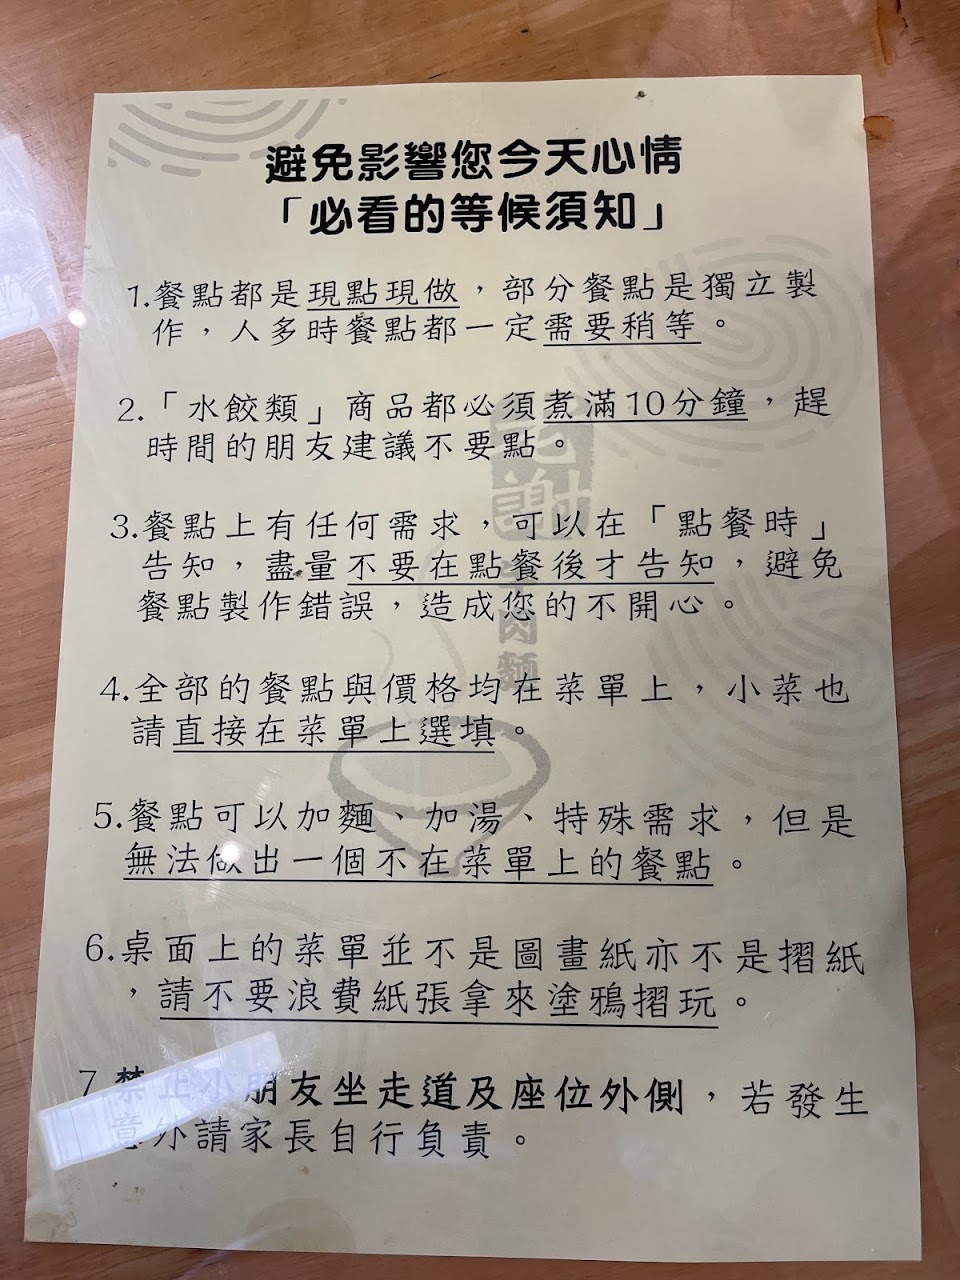 避免影響您今天心情
「必看的等候須知」
1.餐點都是現點現做，部分餐點是獨立製
作，人多時餐點都一定需要稍等。
2.「水餃類」商品都必須煮滿10分鐘，趕
時間的朋友建議不要點。
3.餐點上有任何需求，可以在「點餐時」
告知，盡量不要在點餐後才告知，避免
餐點製作錯誤，造成您的不開心。
4.全部的餐點與價格均在菜單上，小菜也
請直接在菜單上選填。
5.餐點可以加麵、加湯、特殊需求，但是
無法做出一個不在菜單上的餐點。
6.桌面上的菜單並不是圖畫紙亦不是摺紙
，請不要浪費紙張拿來塗鴉摺玩。
7.禁止小朋友坐走道及座位外側，若發生
意外請家長自行負責。
謝
肉麵